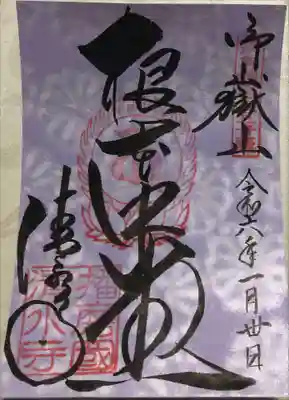 御嶽山
令和六年一月廿日
根本中堂
清水寺
播磨國
清水寺